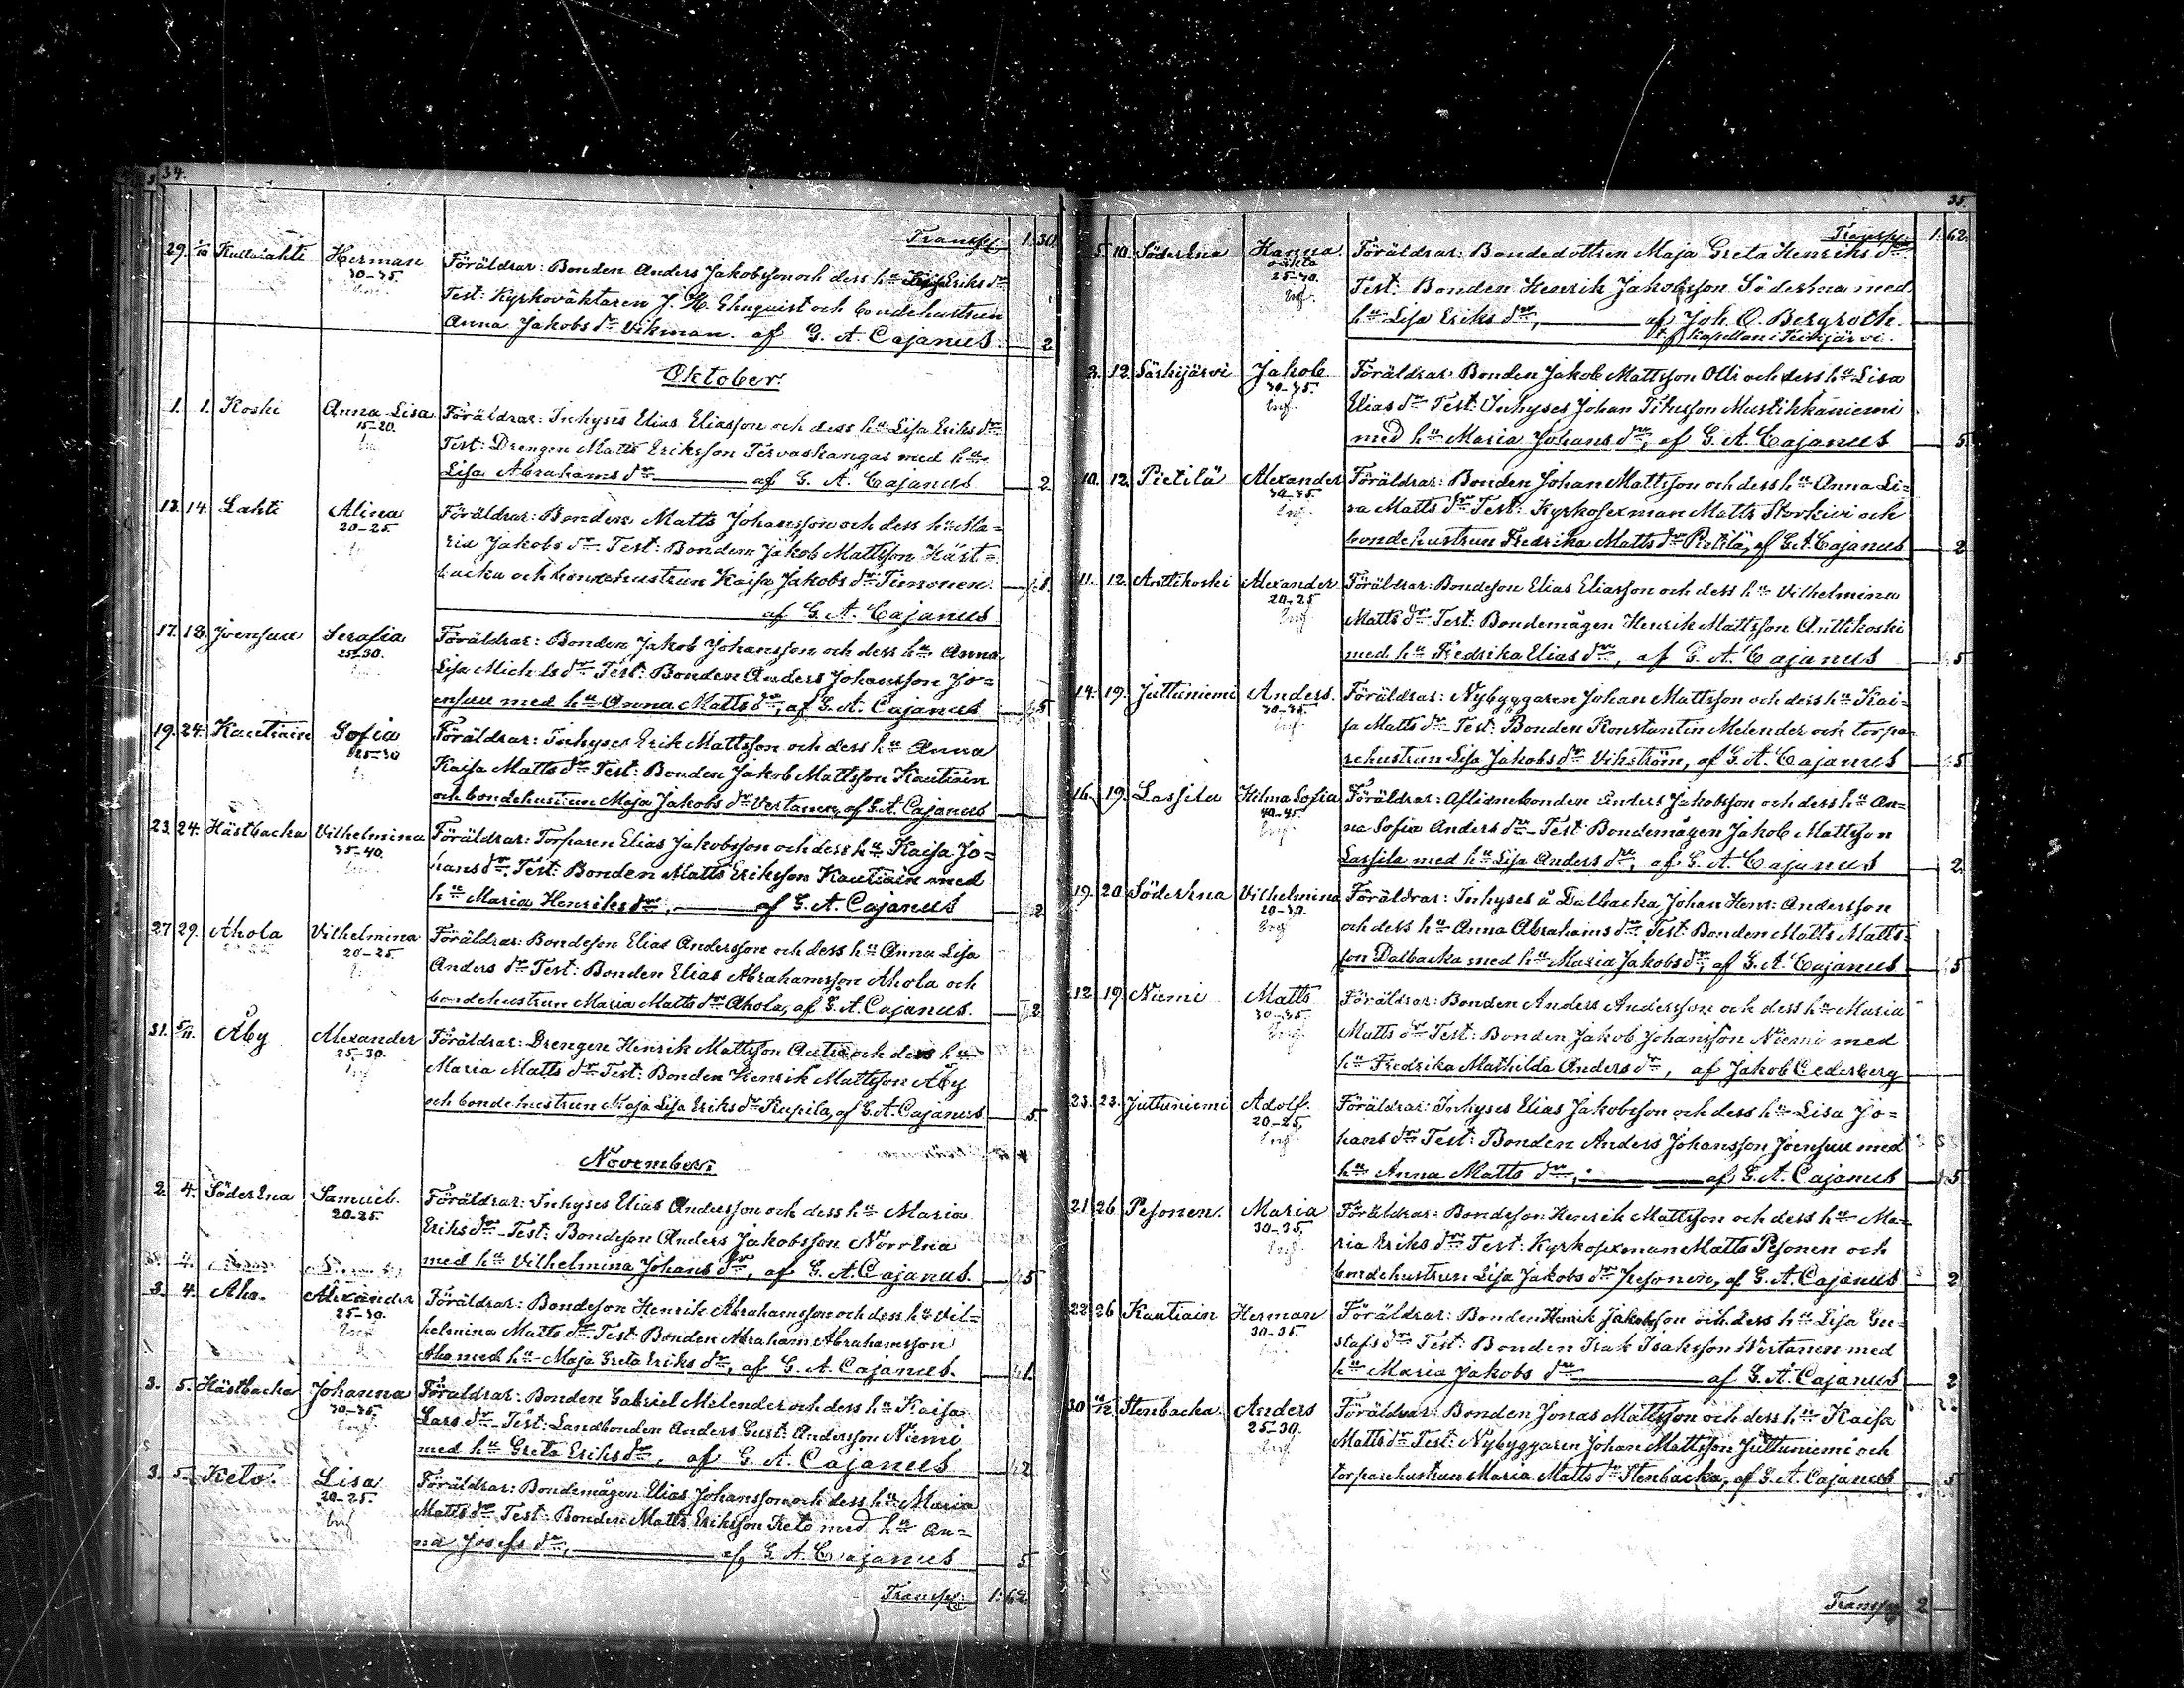 34.
Transp. 1 30
29. 1/10 Kullasahti Herman Föräldrar: Bonden Anders Jakobsson och dess hu Kajsa Eriksdr
30-35. Test: Kyrkoväktaren J. H. Ehnquist och bondehustrun
Anna Jakobsdr Vikman. af G. A. Cajanus. 2
Oktober.
1. 1. Koski Anna Lisa Föräldrar: Inhyses Elias Eliasson och dess hu Lisa Eriksdr
15-20. Test: Drengen Matts Eriksson Tervaskangas med hu
Lisa Abrahamsdr af G. A. Cajanus 2.
13. 14. Lahti Alina Föräldrar: Bonden Matts Johansson och dess hu Ma=
20-25. ria Jakobsdr Test: Bonden Jakob Mattsson Häst=
backa och bondehustrun Kaisa Jakobsdr Timonen. 1.
af G. A. Cajanus
17. 18. Joensuu Serafia Föräldrar: Bonden Jakob Johansson och dess hu Anna
25-30. Lisa Michelsdr Test: Bonden Anders Johansson Jo=
ensuu med hu Anna Mattsdr, af G. A. Cajanus 5
19. 24. Kautiain Sofia Föräldrar: Inhyses Erik Mattsson och dess hu Anna
25-30 Kaisa Mattsdr Test: Bonden Jakob Mattsson Kautiain
och bondehustrun Maja Jakobsdr Vertanen, af G. A. Cajanus
23. 24. Hästbacka Vilhelmina Föräldrar: Torparen Elias Jakobsson och dess hu Kaisa Jo=
35-40. hansdr. Test: Bonden Matts Eriksson Kautiain med
hu Maria Henriksdr, af G. A. Cajanus 2
27 29. Ahola Vilhelmina Föräldrar: Bondeson Elias Andersson och dess hu Anna Lisa
20-25. Andersdr Test: Bonden Elias Abrahamsson Ahola och
bondehustrun Maria Mattsdr Ahola, af G. A. Cajanus. 2
31. 5/11. Åby Alexander Föräldrar: Drengen Henrik Mattsson Autio och dess hu
25-30. Maria Mattsdr Test: Bonden Henrik Mattsson Åby
och bondehustrun Maja Lisa Eriksdr Kupila, af G. A. Cajanus 5.
November.
2. 4. Söderena Samuel. Föräldrar: Inhyses Elias Andersson och dess hu Maria
20-25. Eriksdr Test: Bondeson Anders Jakobsson Norrena
med hu Vilhelmina Johansdr, af G. A. Cajanus. 5
3. 4. Aho. Alexander Föräldrar: Bondeson Henrik Abrahamsson och dess hu Vil=
25-30. helmina Mattsdr Test: Bonden Abraham Abrahamsson
Aho med hu Maja Greta Eriksdr, af G. A. Cajanus. 1
3. 5. Hästbacka Johanna Föräldrar: Bonden Gabriel Melender och dess hu Kaisa
30-35. Larsdr Test: Landbonden Anders Gust: Andersson Niemi
med hu Greta Eriksdr, af G. A. Cajanus 2
3. 5. Keto. Lisa Föräldrar: Bondemågen Elias Johansson och dess hu Maria
20-25. Mattsdr Test: Bonden Matts Eriksson Keto med hu An=
na Josefsdr, af G. A. Cajanus 5
Transp: 1: 62.
35.
Transp. 1. 62.
5. 10. Söderena Hanna Föräldrar: Bondedottren Maja Greta Henriksdr
oäkta
25-30. Test: Bonden Henrik Jakobsson Söderena med
hu Lisa Eriksdr, af Joh. O. Bergroth.
Kapellan i Kivijärvi.
3. 12. Särkijärvi Jakob Föräldrar: Bonden Jakob Mattsson Olli och dess hu Lisa
30-35. Eliasdr Test: Inhyses Johan Titusson Mustikkaniemi
med hu Maria Johansdr, af G. A. Cajanus 5.
10. 12. Pietilä Alexander Föräldrar: Bonden Johan Mattsson och dess hu Anna Li=
30-35. sa Mattsdr Test: Kyrkosexman Matts Storkivi och
bondehustrun Fredrika Mattsdr Pietilä, af G. A. Cajanus 2
11. 12. Anttikoski Alexander Föräldrar: Bondeson Elias Eliasson och dess hu Vilhelmina
20-25 Mattsdr Test: Bondemågen Henrik Mattsson Anttikoski
med hu Fredrika Eliasdr, af G. A. Cajanus 5
14. 19. Juttuniemi Anders. Föräldrar: Nybyggaren Johan Mattsson och dess hu Kai=
30-35. sa Mattsdr Test: Bonden Konstantin Melender och torpa=
rehustrun Lisa Jakobsdr Vikström, af G. A. Cajanus 5
16. 19. Lassila Hilma Sofia Föräldrar: Aflidne bonden Anders Jakobsson och dess hu An=
40-45. na Sofia Andersdr Test: Bondemågen Jakob Mattsson
Lassila med hu Lisa Andersdr, af G. A. Cajanus 2.
19. 20 Söderena Vilhelmina Föräldrar: Inhyses å Dalbacka Johan Henr: Andersson
och dess hu Anna Abrahamsdr Test: Bonden Matts Matts=
son Dalbacka med hu Maria Jakobsdr, af G. A. Cajanus 5
12. 19. Niemi Matts Föräldrar: Bonden Anders Andersson och dess hu Maria
30-35. Mattsdr Test: Bonden Jakob Johansson Niemi med
hu Fredrika Mathilda Andersdr, af Jakob Cederberg
23. 23. Juttuniemi Adolf. Föräldrar: Inhyses Elias Jakobsson och dess hu Lisa Jo=
20-25. hansdr Test: Bonden Anders Johansson Joensuu med
hu Anna Mattsdr, af G. A. Cajanus 5
21 26 Pesonen. Maria Föräldrar: Bondeson Henrik Mattsson och dess hu Ma=
30-35. ria Eriksdr Test: Kyrkosexman Matts Pesonen och
bondehustrun Lisa Jakobsdr Pesonen, af G. A. Cajanus 2
22 26 Kautiain Herman Föräldrar: Bonden Henrik Jakobsson och dess hu Lisa Gu=
30-35. stafsdr Test: Bonden Isak Isaksson Wertanen med
hu Maria Jakobsdr af G. A. Cajanus 2
30 Stenbacka Anders Föräldrar: Bonden Jonas Mattsson och dess hu Kaisa
25-30. Mattsdr Test: Nybyggaren Johan Mattsson Juttuniemi och
torparehustrun Maria Mattsdr Stenbacka, af G. A. Cajanus 5
Transp. 2